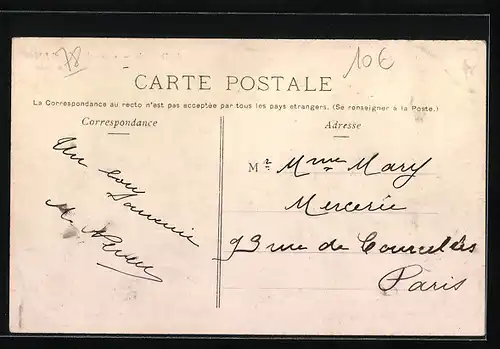 78
10€
CARTE POSTALE
La Correspondance au recto n'est pas acceptée par tous les pays étrangers. (Se renseigner à la Poste.)
Correspondance
Adresse
Un bon
Souvenir
M.
Mr. Mme Mary
Mercerie
93 rue de Courcelles
Paris